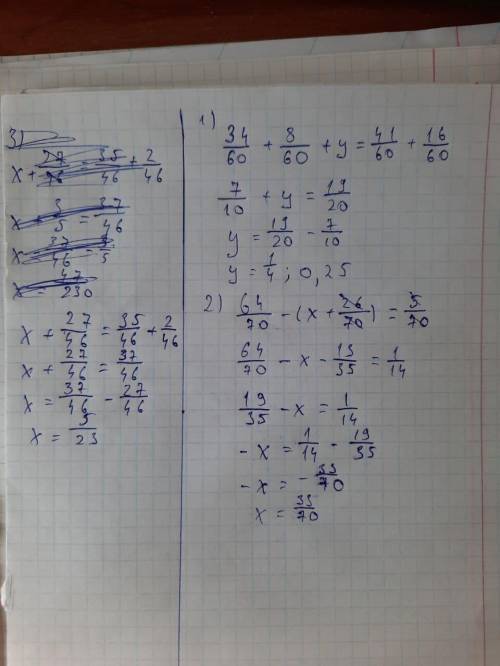 3)
x + 27/46 = 35/46 + 2/46
x + 27/46 = 37/46
x = 37/46 - 27/46
x = 5/23
1)
34/60 + 8/60 + y = 41/60 + 16/60
7/10 + y = 19/20
y = 19/20 - 7/10
y = 1/4 ; 0,25
2) 64/70 - (x + 26/70) = 5/70
64/70 - x - 13/35 = 1/14
19/35 - x = 1/14
- x = 1/14 - 19/35
- x = - 33/70
x = 33/70